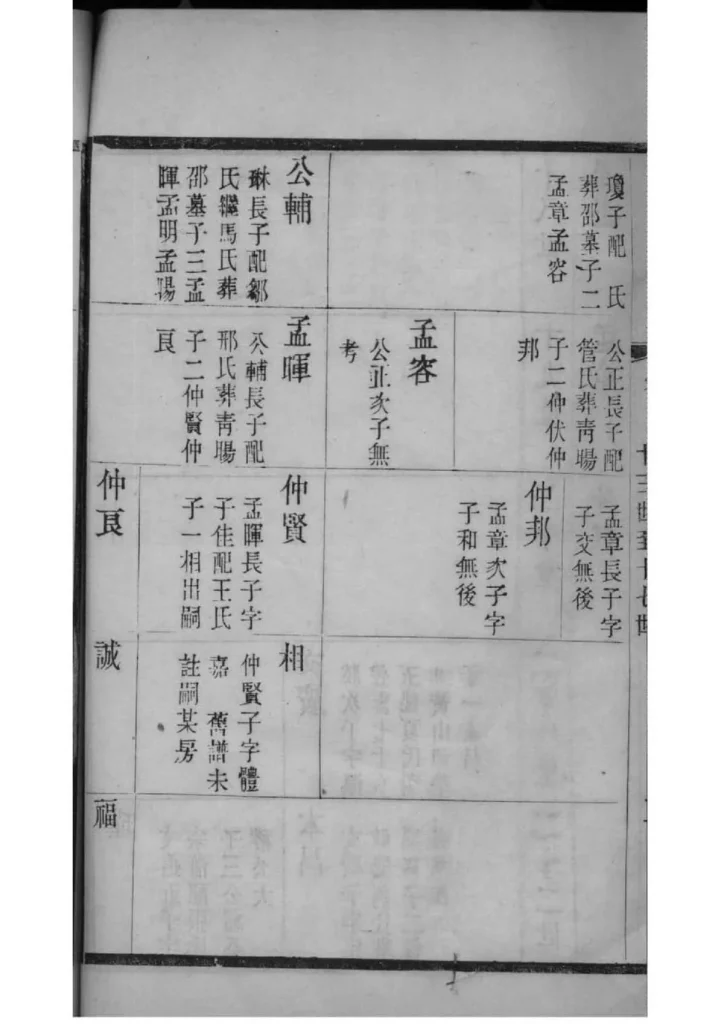 瓊子配　氏
葬邵墓子二
孟章孟容
公輔
琳長子配鄒
氏繼馬氏葬
邵墓子三孟
暉孟明孟陽
公正長子配
管氏葬靑暘
子二仲伏仲
邦
孟容
公正次子無
考
孟暉
公輔長子配
邢氏葬靑暘
子二仲賢仲
良
孟章長子字
子交無後
仲邦
孟章次子字
子和無後
仲賢
孟暉長子字
子佳配王氏
子一相出嗣
仲良
相
仲賢子字體
嘉　舊譜未
註嗣某房
誠
福